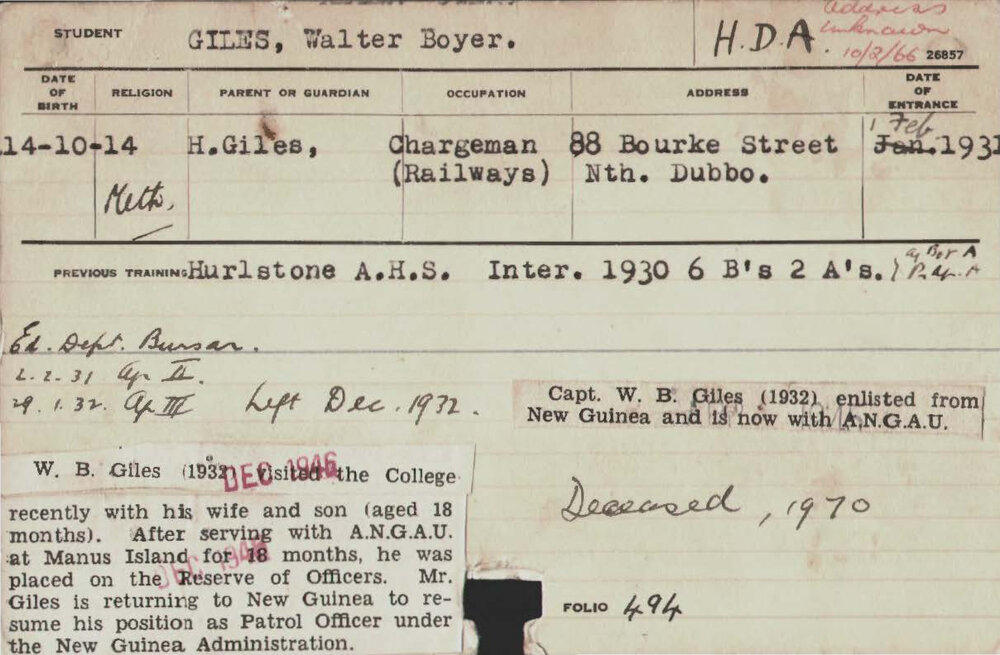 STUDENT GILES, Walter Boyer. H.D.A. Address
unknown
10/2/66 26857
DATE OF BIRTH RELIGION PARENT OR GUARDIAN OCCUPATION ADDRESS DATE OF ENTRANCE
14-10-14 H.Giles, Chargeman 88 Bourke Street 1 Feb Jan. 1931
Meth. (Railways) Nth. Dubbo.
PREVIOUS TRAINING Hurlstone A.H.S. Inter. 1930 6 B's 2 A's. Ag Bot A
Ed. Dept. Bursar.
2.2.31 Ag II.
29.1.32. Ag III Left Dec. 1932.
Capt. W. B. Giles (1932) enlisted from
New Guinea and is now with A.N.G.A.U.
W. B. Giles (1932) visited the College
DEC 1946
recently with his wife and son (aged 18
months). After serving with A.N.G.A.U.
at Manus Island for 18 months, he was
placed on the Reserve of Officers. Mr.
Giles is returning to New Guinea to re-
sume his position as Patrol Officer under
the New Guinea Administration.
Deceased, 1970
FOLIO 494